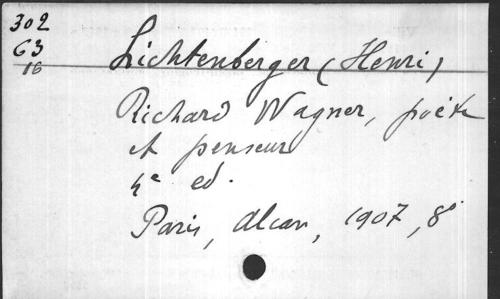 302
C3
16
Lichtenberger (Henri)
Richard Wagner, poète
et penseur
4e ed.
Paris, Alcan, 1907, 8°